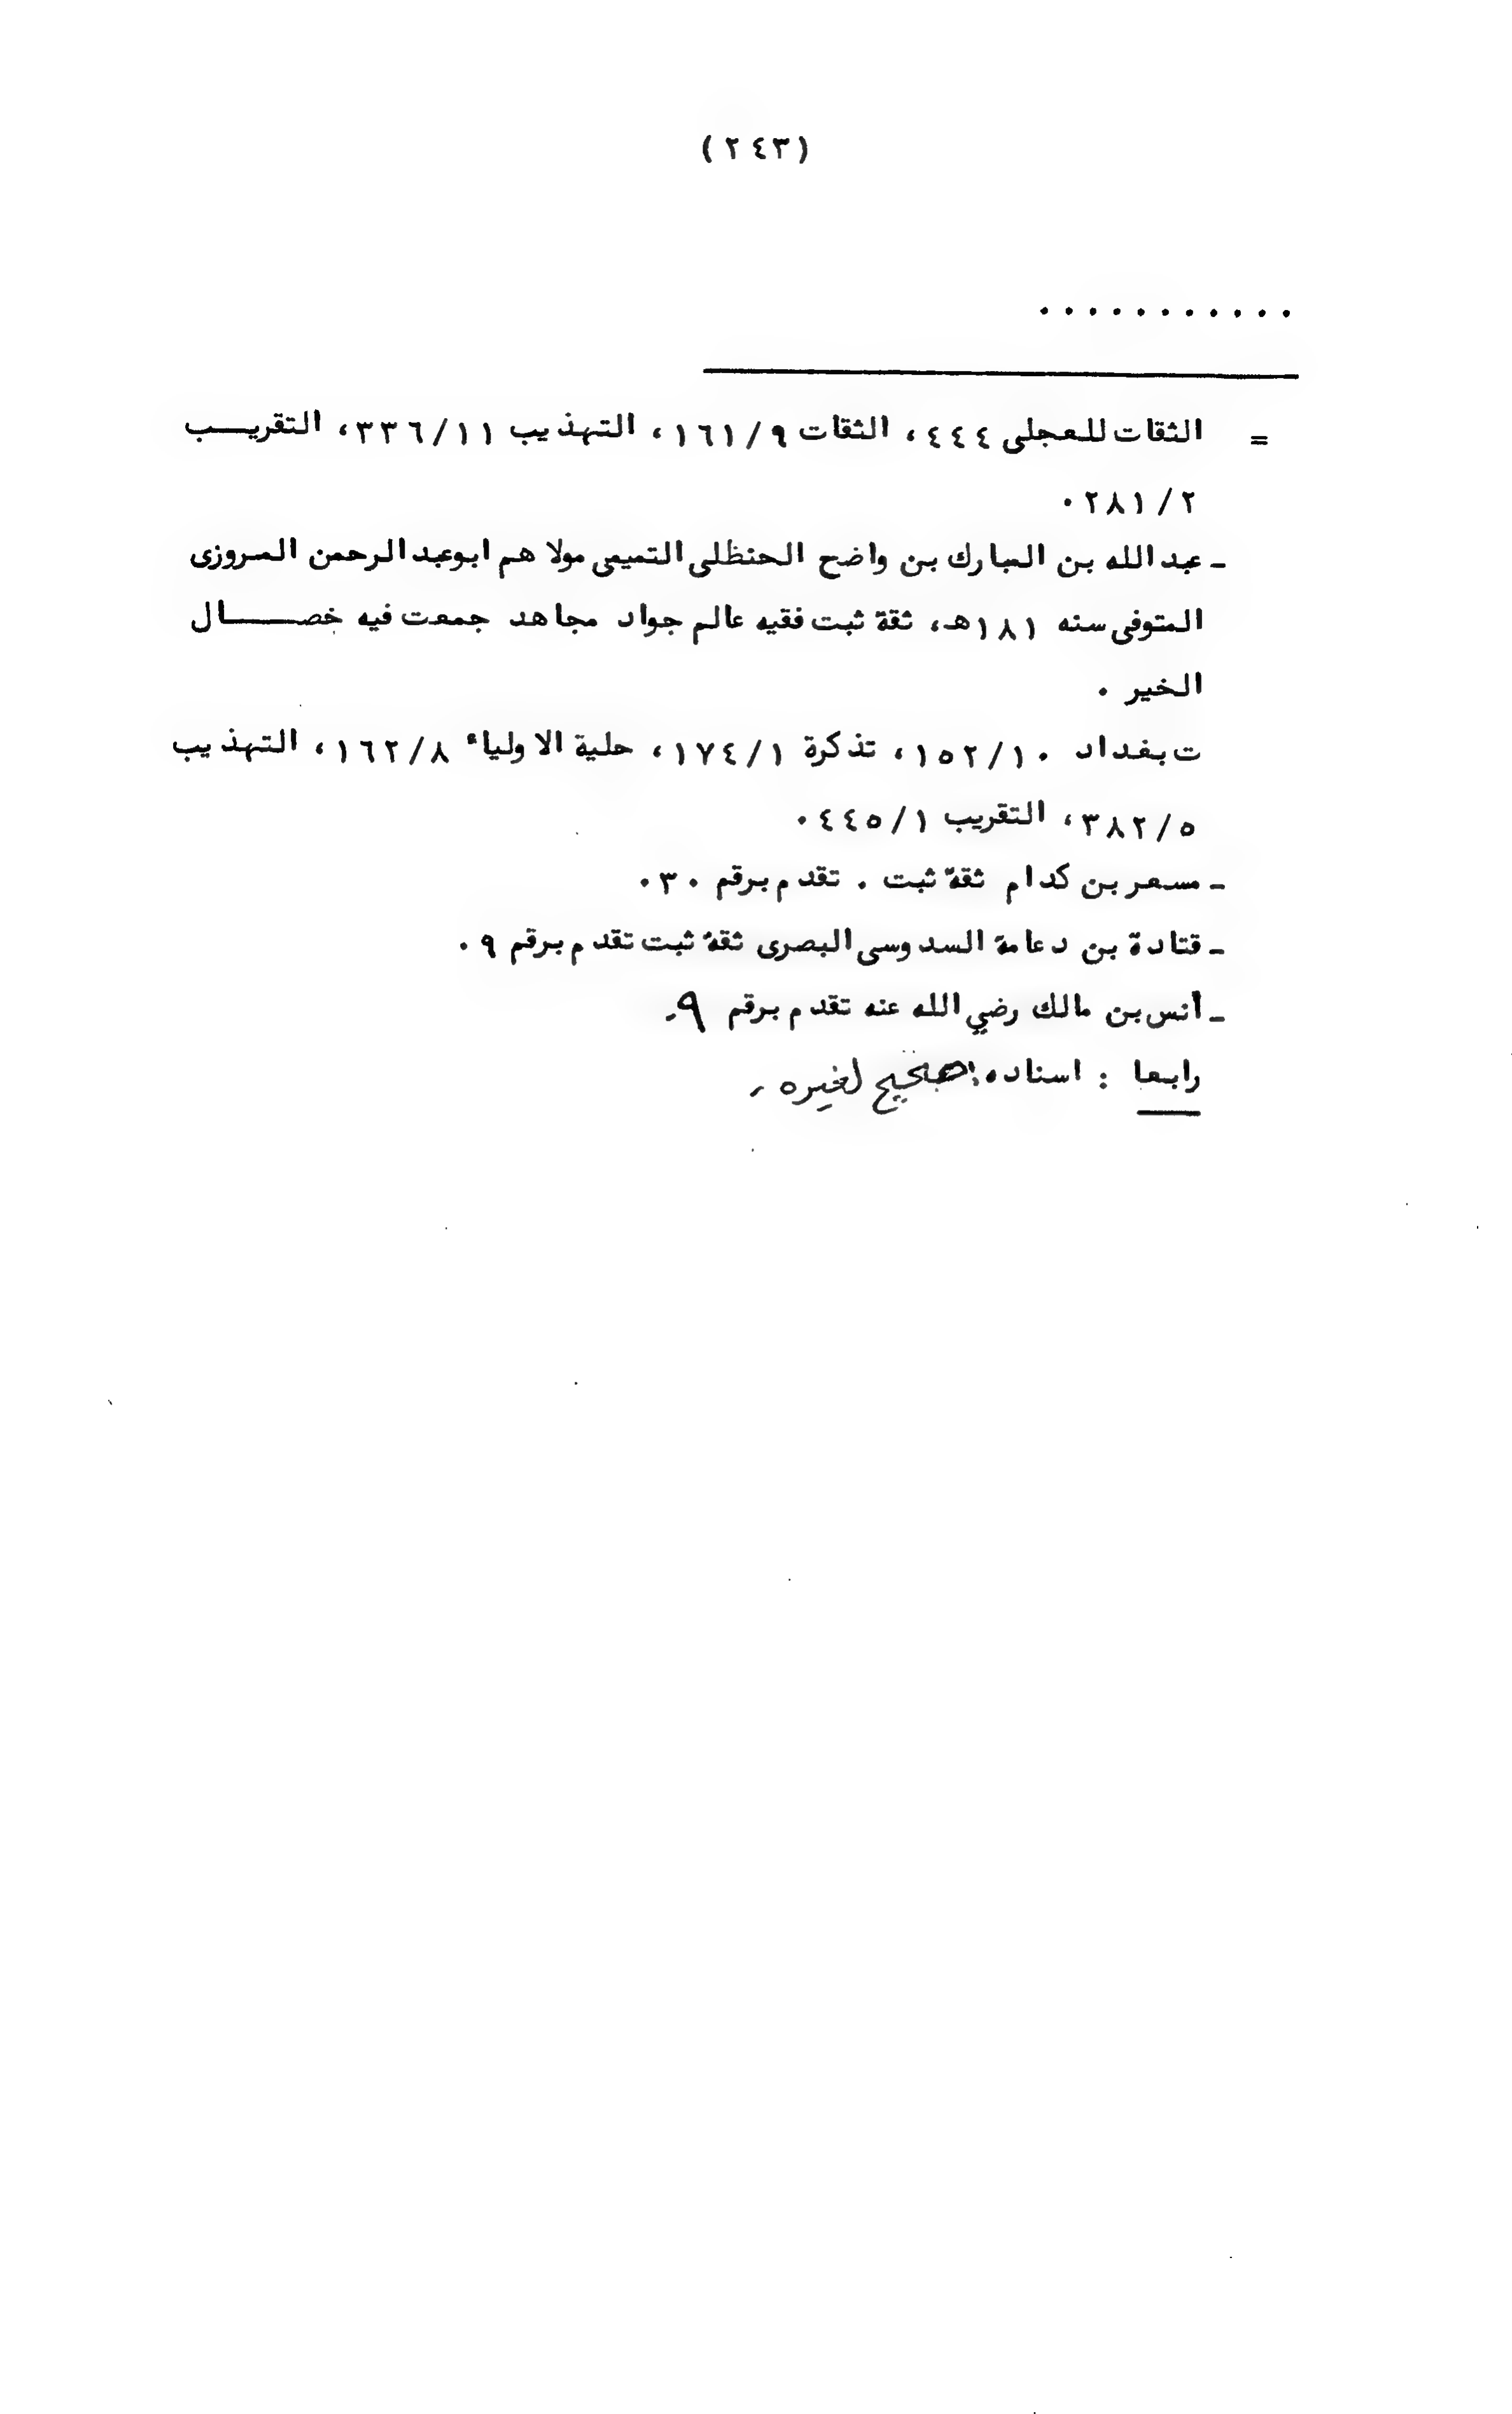 (٢٤٣)
...........
= الثقات للعجلى ٤٤٤، الثقات ١٦١/٩، التهذيب ٣٣٦/١١، التقريـــب
٢٨١/٢.
ـ عبد الله بن المبارك بن واضح الحنظلى التميمى مولاهم ابوعبد الرحمن المروزى
المتوفى سنه ١٨١هـ، ثقة ثبت فقيه عالم جواد مجاهد جمعت فيه خصـــــال
الخير .
ت بغداد ١٥٢/١٠، تذكرة ١٧٤/١، حلية الاولياء ١٦٢/٨، التهذيب
٣٨٢/٥، التقريب ٤٤٥/١.
ـ مسعر بن كدام ثقة ثبت . تقدم برقم ٣٠.
ـ قتادة بن دعامة السدوسى البصرى ثقة ثبت تقدم برقم ٩.
ـ أنس بن مالك رضي الله عنه تقدم برقم ٩.
رابعا : اسناده صحيح لغيره .